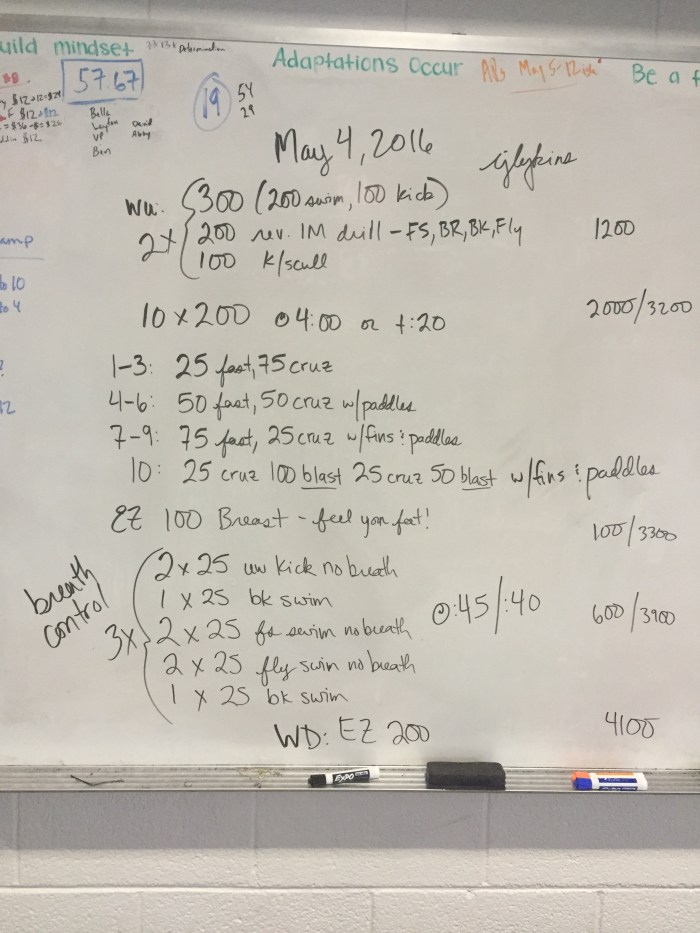 uild mindset
Adaptations Occur
Be a f
57.67
19
54
29
Bella
VP
Ben
David
Abby
$12
amp
to 10
to 4
?
12
May 4, 2016
wu: 300 (200 swim, 100 kick)
2x 200 rev. IM drill - FS, BR, BK, Fly 1200
100 k/scull
10 x 200 @ 4:00 or t:20 2000/3200
1-3: 25 fast, 75 cruz
4-6: 50 fast, 50 cruz w/paddles
7-9: 75 fast, 25 cruz w/fins & paddles
10: 25 cruz 100 blast 25 cruz 50 blast w/fins & paddles
EZ 100 Breast - feel your feet! 100/3300
breath control
3x
2 x 25 uw kick no breath
1 x 25 bk swim
2 x 25 fs swim no breath
2 x 25 fly swim no breath
1 x 25 bk swim
@:45/:40 600/3900
WD: EZ 200 4100
EXPO